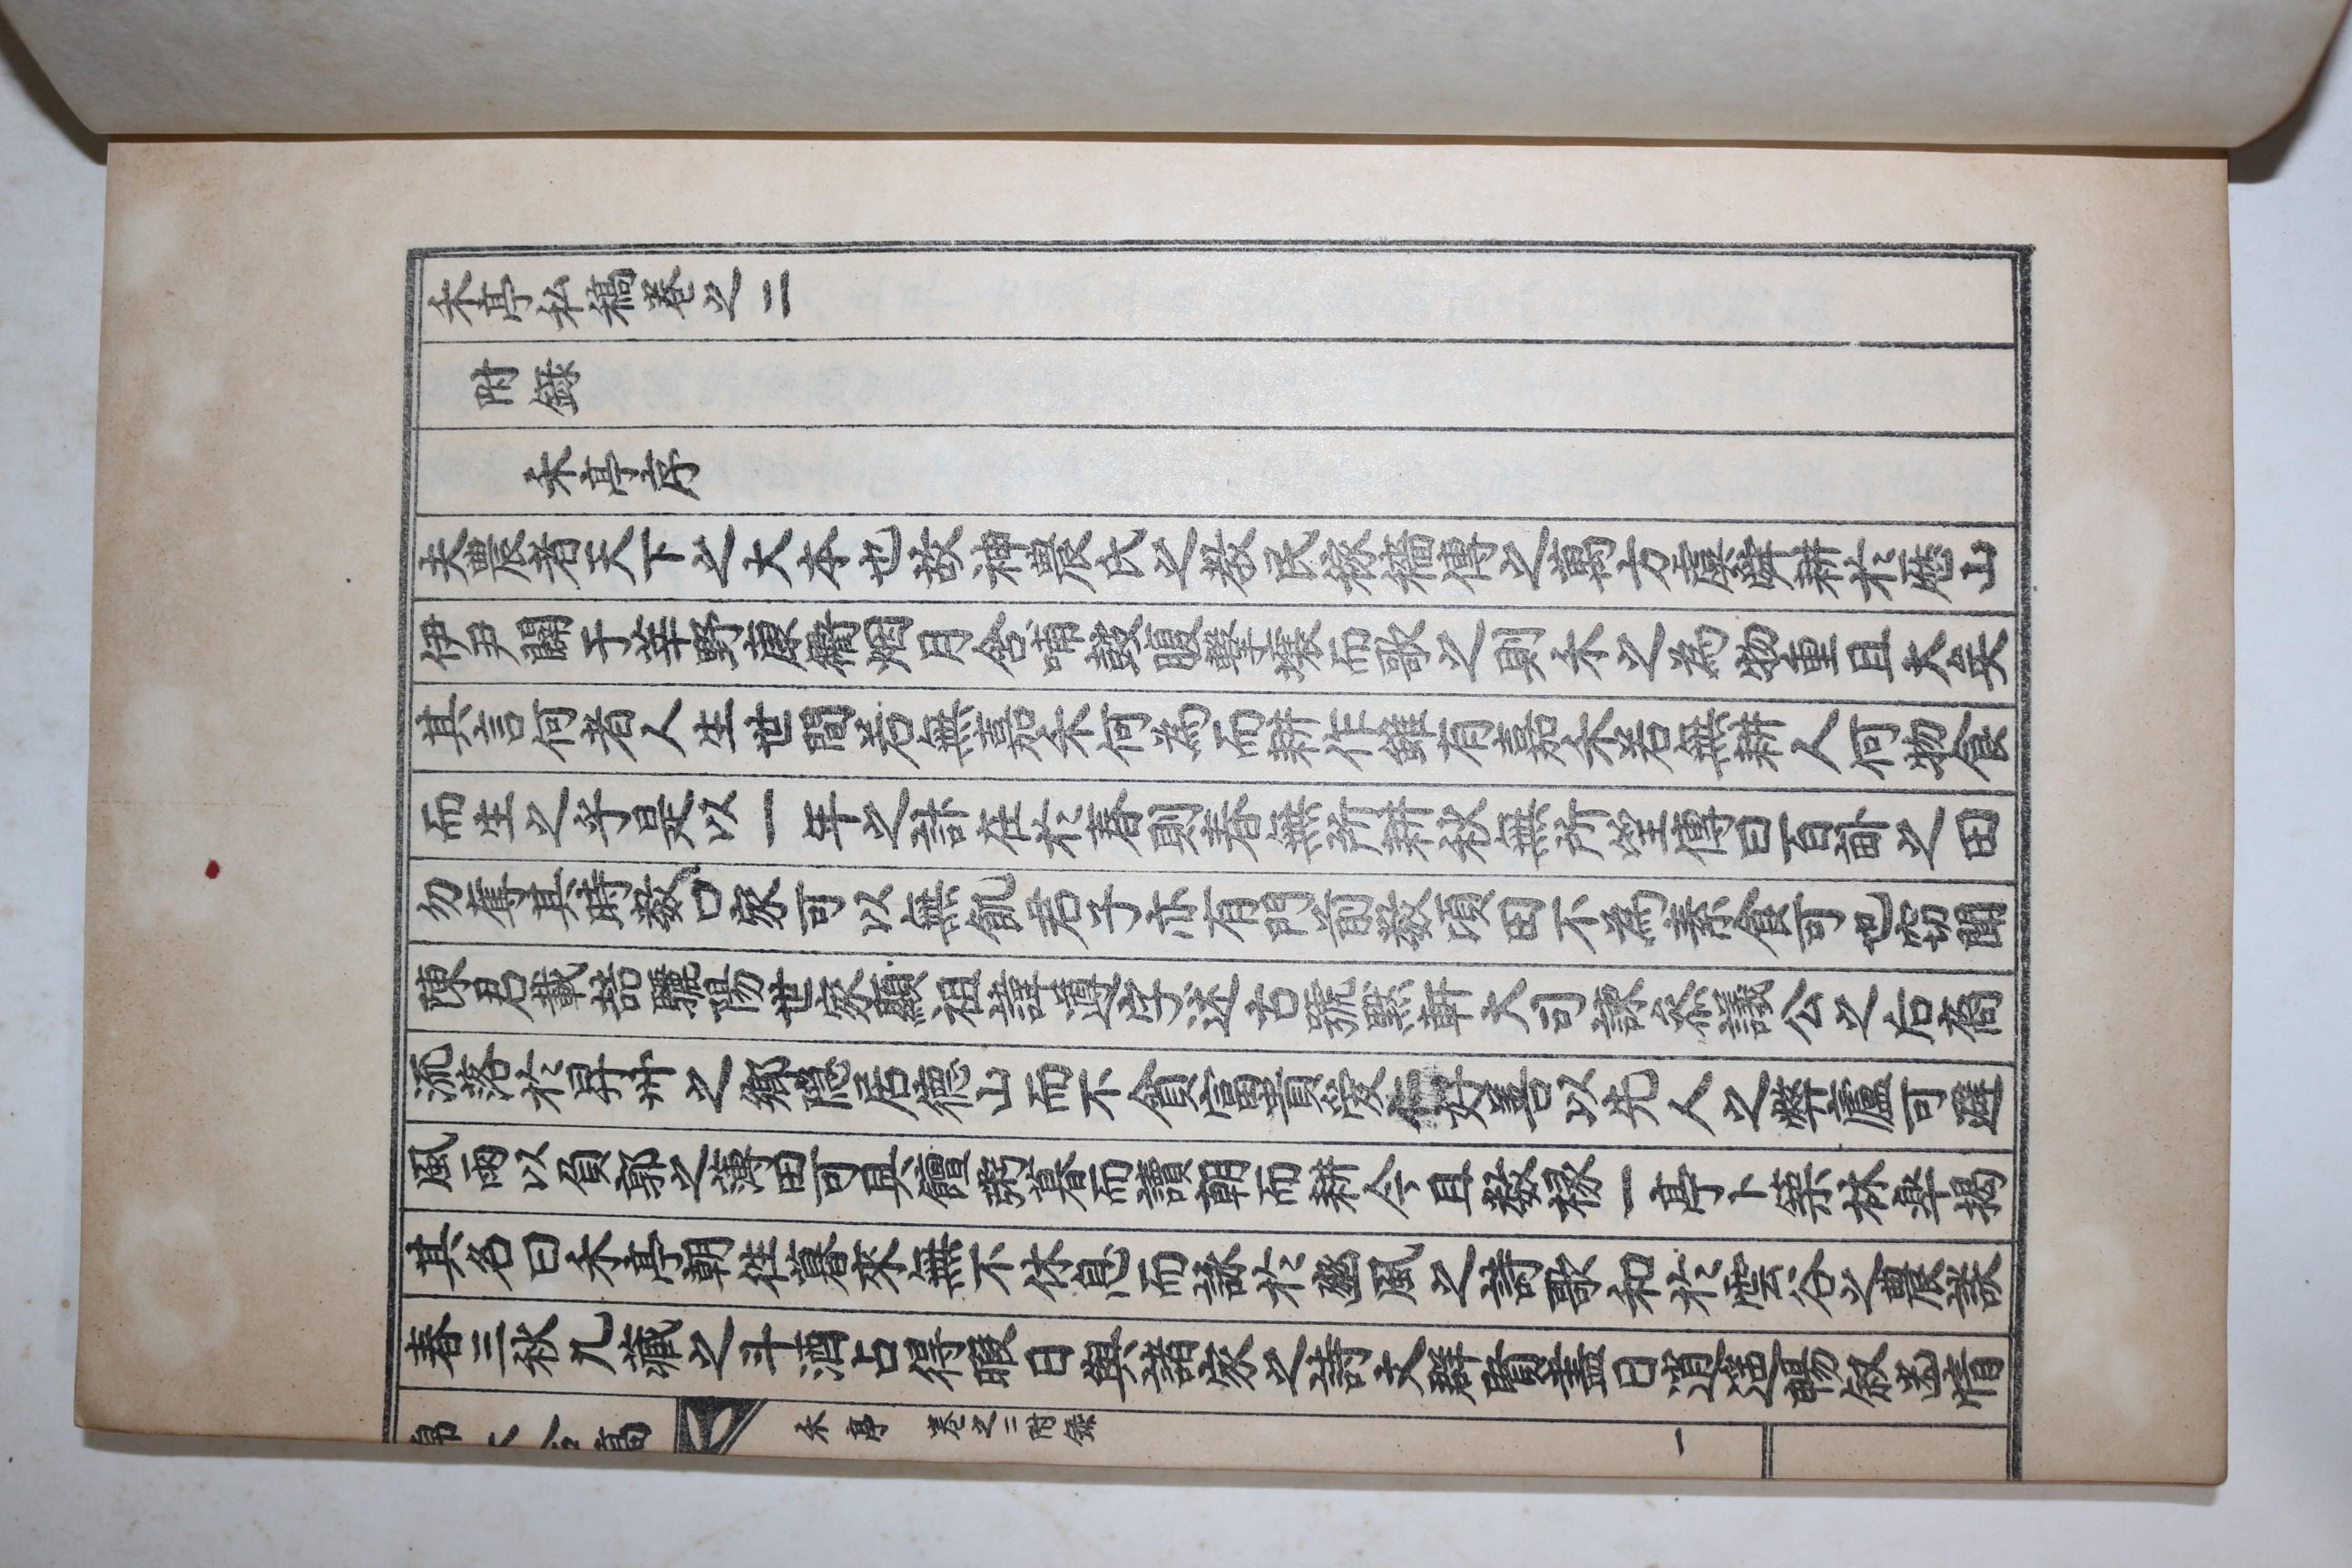 禾亭私稿卷之二
附錄
禾亭序
夫農者天下之大本也故神農氏之敎民稼穡傳之萬方虞舜耕於歷山
伊尹闢于莘野康衢烟月含哺鼓腹擊壤而歌之則禾之為物重且大矣
其言何者人生世間若無嘉禾何為而耕作雖有嘉禾若無耕人何物食
而生之乎是以一年之計在於春則春無所耕秋無所望傳曰百畝之田
勿奪其時数口家可以無飢君子亦有門前数頃田不為素食可也窃聞
陳君載喆驪陽世家顯祖諱遵字述古號默軒大司諫叅議公之后裔
流落於昇州之鄉隐居德山而不貪富貴愛仁好善以先人之弊廬可避
風雨以負郭之薄田可具饘粥暮而讀朝而耕今且数椽一亭卜築林皐揭
其名曰禾亭朝徃暮來無不休息而詠於豳風之詩歌和於雲谷之農談
春三秋九藏之斗酒占得暇日與諸家之詩文群賢盡日逍遥暢叙幽情
禾亭 卷之二附錄
一